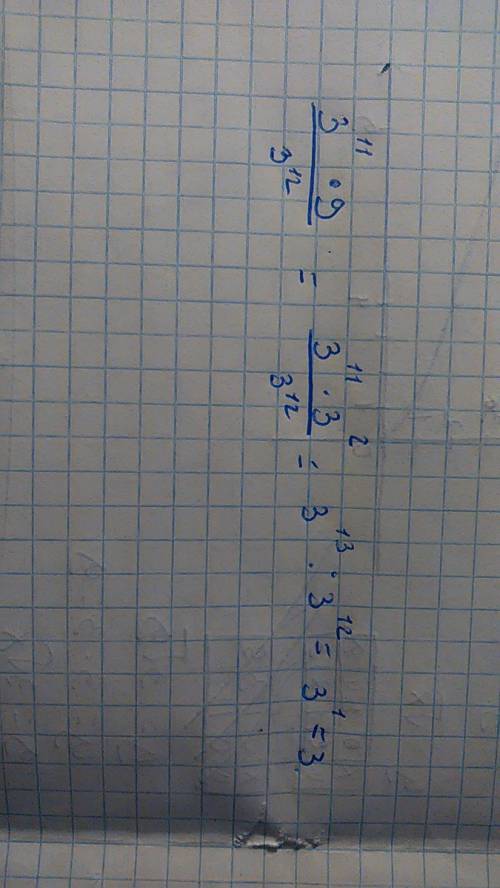 3¹¹ · 9 / 3¹² = 3¹¹ · 3² / 3¹² = 3¹³ : 3¹² = 3¹ = 3